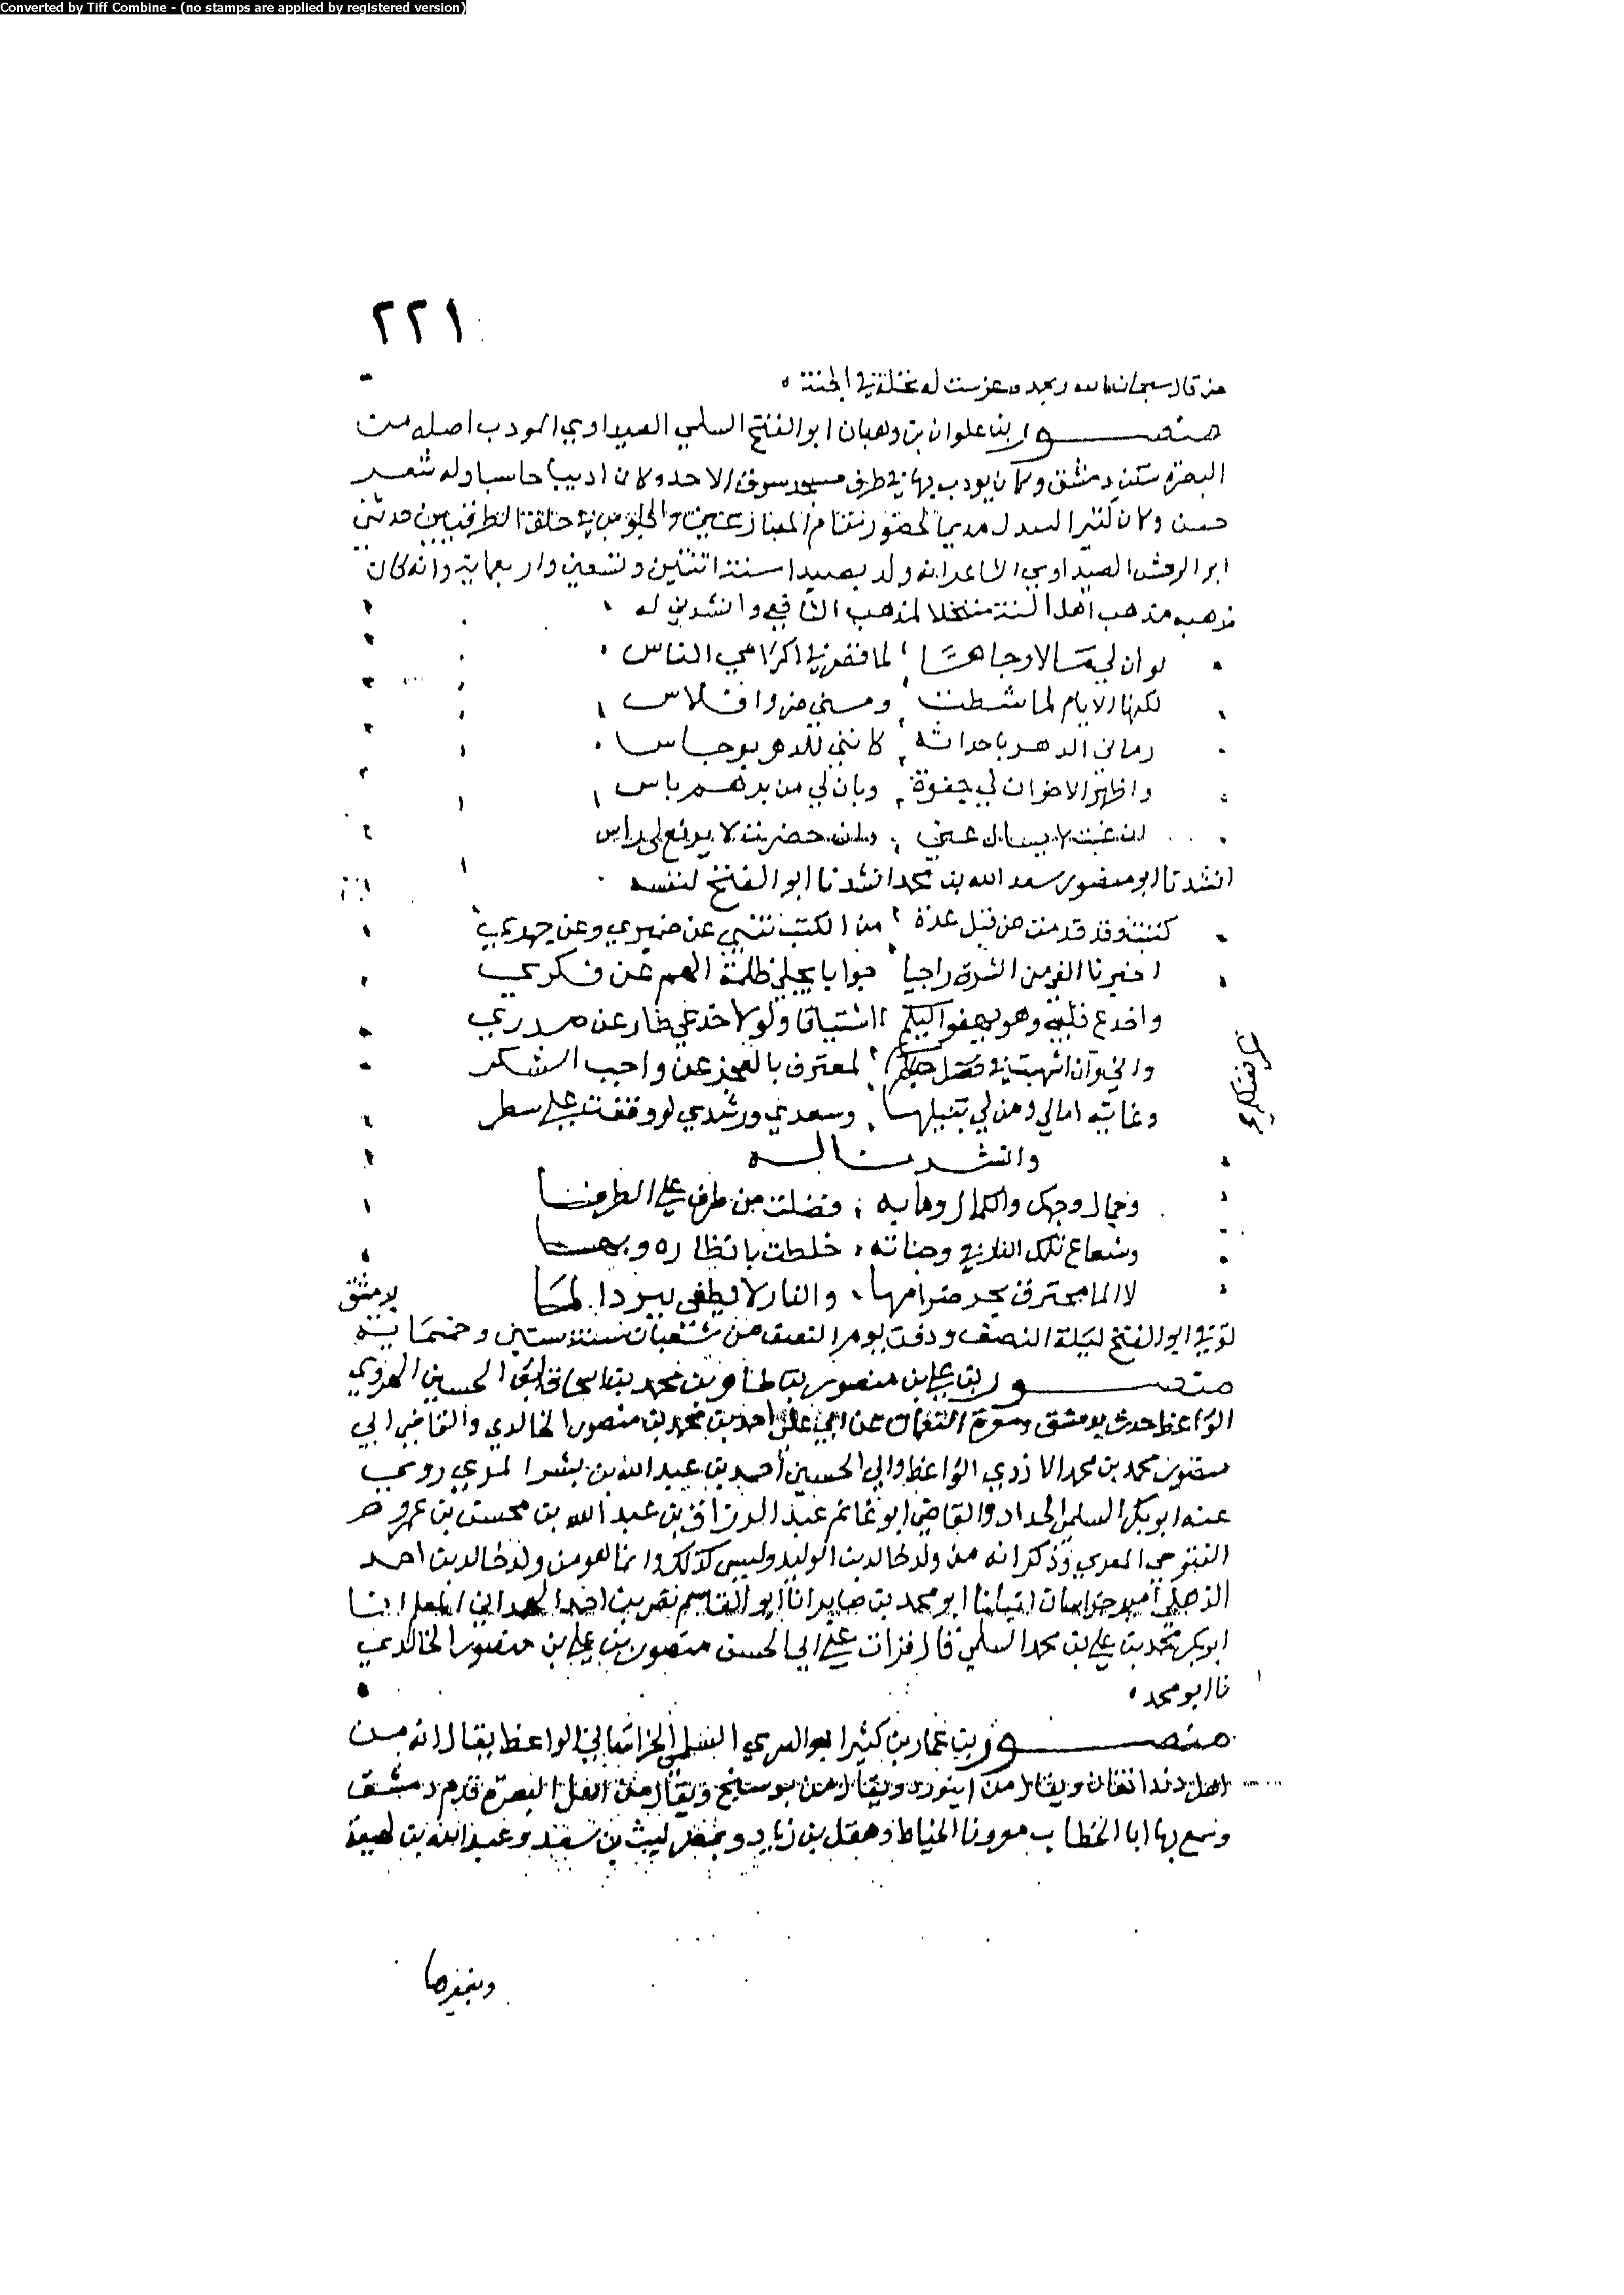 Converted by Tiff Combine - (no stamps are applied by registered version)
٢٢١
من قال سبحان الله وبحمده غرست له نخلة في الجنة
منصور بن علوان بن وهبان ابو الفتح السلمي الصيداوي المودب اصله من
البصرة سكن دمشق وكان يودب بها في طرف مسجد سوق الاحد وكان اديبا حاسبا وله شعر
حسن وكان كثير السدل مديما لحضور والجلوس في حلقة حدثني
ابو الوحش الصيداوي الشاعر انه ولد بصيدا سنة اثنتين وتسعين واربعماية وانه كان
مذهبه مذهب اهل السنة منتحلا لمذهب الشافعي وانشدني له
لو ان لي مالا وجاها لما قصر في اكرامي الناس
لكنها الايام لما شطت ومسني ضر وافلاس
رماني الدهر باحداثه كانني للدهر برجاس
واظهر الاخوان لي جفوة وبان لي من برهم ياس
ان غبت لا يسال عني وان حضرت لا يرفع لي راس
انشدنا ابو منصور سعد الله بن محمد انشدنا ابو الفتح لنفسه
كتبت وقد قدمت من قبل عدة من الكتب تنبي عن ضميري وعن جهري
جوابا يجلي ظلمة الهم عن فكري
واخدع قلبي وهو يهفو اليكم اشتياقا ولولا خدعي طار عن صدري
واني وان في لمعترف بالعجز عن واجب الشكر
وغاية امالي ومن لي بنيلها وسعدي ورشدي لو وقفت على سطر
وانشدنا له
وجمال وجهك والكمال وما به فضلت من طرف على
وشعاع تلك النار في وجناته خلطت
لا الما محترق بحر ضرامها والنار لا يطفى ببرد الما
بدمشق
توفي ابو الفتح ليلة النصف ودفن يوم النصف من شعبان سنة ستين وخمسماية
منصور بن علي بن منصور بن طاهر بن محمد بن اسحاق ابو الحسين الهروي
الواعظ حدث بدمشق ومعرة النعمان عن ابي علي احمد بن محمد بن منصور الخالدي والقاضي ابي
منصور محمد بن محمد الازدي الواعظ وابي الحسين احمد بن عبد الله بن بشر المزي روى
عنه ابو بكر السلمي الحداد والقاضي ابو غانم عبد الرزاق بن عبد الله بن محسن بن عمرو
التنوخي المعري وذكر انه من ولد خالد بن الوليد وليس كذلك وانما هو من ولد خالد بن احمد
الذهلي امير خراسان انبانا ابو محمد بن صابر انا ابو القاسم نصر بن احمد الهمداني انا
ابو بكر محمد بن علي بن محمد السلمي قال قرات على ابي الحسن منصور بن علي بن منصور الخالدي
نا ابو محمد
منصور بن عمار بن كثير ابو السري السلمي الخراساني الواعظ يقال انه من
اهل دندانقان ويقال من ابيورد ويقال من بوسنج ويقال من اهل البصرة قدم دمشق
وسمع بها ابا الخطاب معروفا الخياط وهقل بن زياد وبمصر ليث بن سعد وعبد الله بن لهيعة
وبغيرها